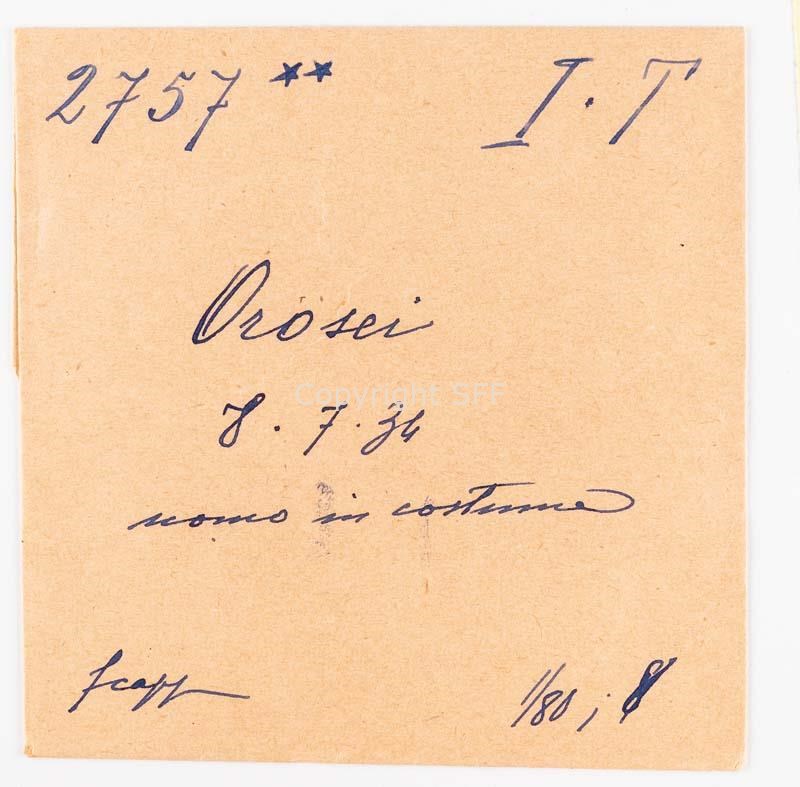 2757 ** I.T
Orosei
Copyright SFF
8.7.34
uomo in costume
1/80; 8